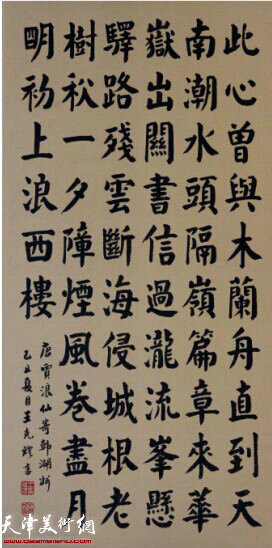 此心曾與木蘭舟直到天
南潮水頭隔嶺篇章來華
嶽出關書信過瀧流峯懸
驛路殘雲斷海侵城根老
樹秋一夕瘴煙風卷盡月
明初上浪西樓
唐賈浪仙寄韓湖州
乙丑夏月王克錂書
天津美術網